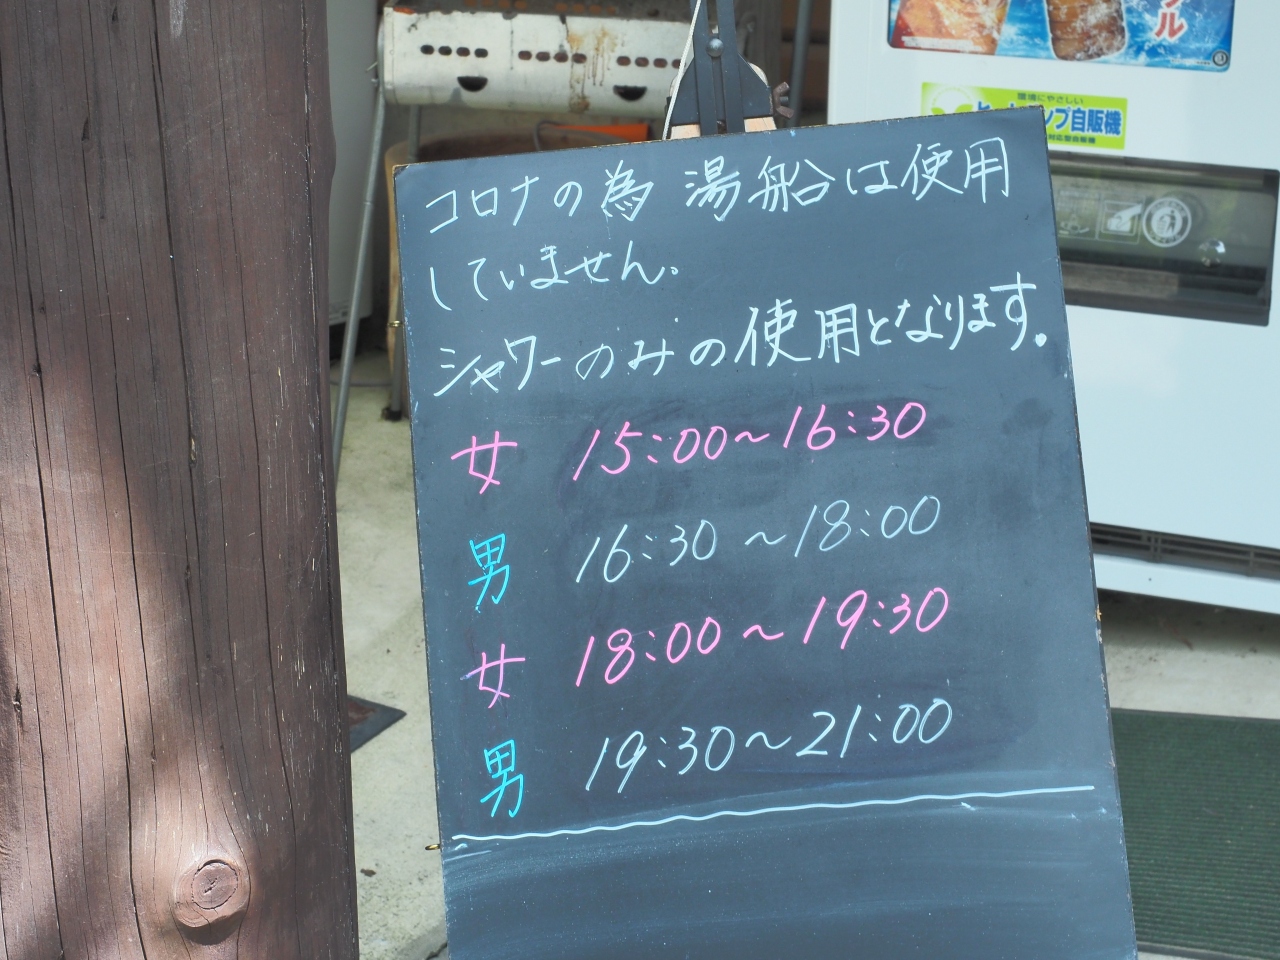 ル
環境にやさしい
ヒートポンプ自販機
コロナの為 湯船は使用
していません。
シャワーのみの使用となります。
女 15:00~16:30
男 16:30~18:00
女 18:00~19:30
男 19:30~21:00